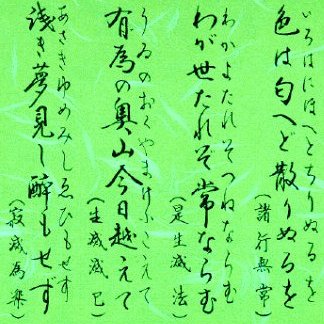 いろはにほへとちりぬるを
色は匂へど散りぬるを
(諸行無常)
わかよたれそつねならむ
わが世たれぞ常ならむ
(是生滅法)
うゐのおくやまけふこえて
有為の奥山今日越えて
(生滅滅已)
あさきゆめみしゑひもせす
浅き夢見し酔もせず
(寂滅為楽)